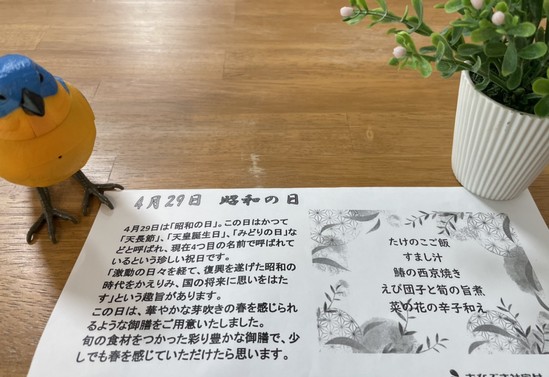 4月29日 昭和の日
4月29日は「昭和の日」。この日はかつて
「天長節」、「天皇誕生日」、「みどりの日」な
どと呼ばれ、現在4つ目の名前で呼ばれて
いるという珍しい祝日です。
「激動の日々を経て、復興を遂げた昭和の
時代をかえりみ、国の将来に思いをはた
す」という趣旨があります。
この日は、華やかな芽吹きの春を感じられ
るような御膳をご用意いたしました。
旬の食材をつかった彩り豊かな御膳で、少
しでも春を感じていただけたら思います。
たけのこご飯
すまし汁
鰆の西京焼き
えび団子と筍の旨煮
菜の花の辛子和え